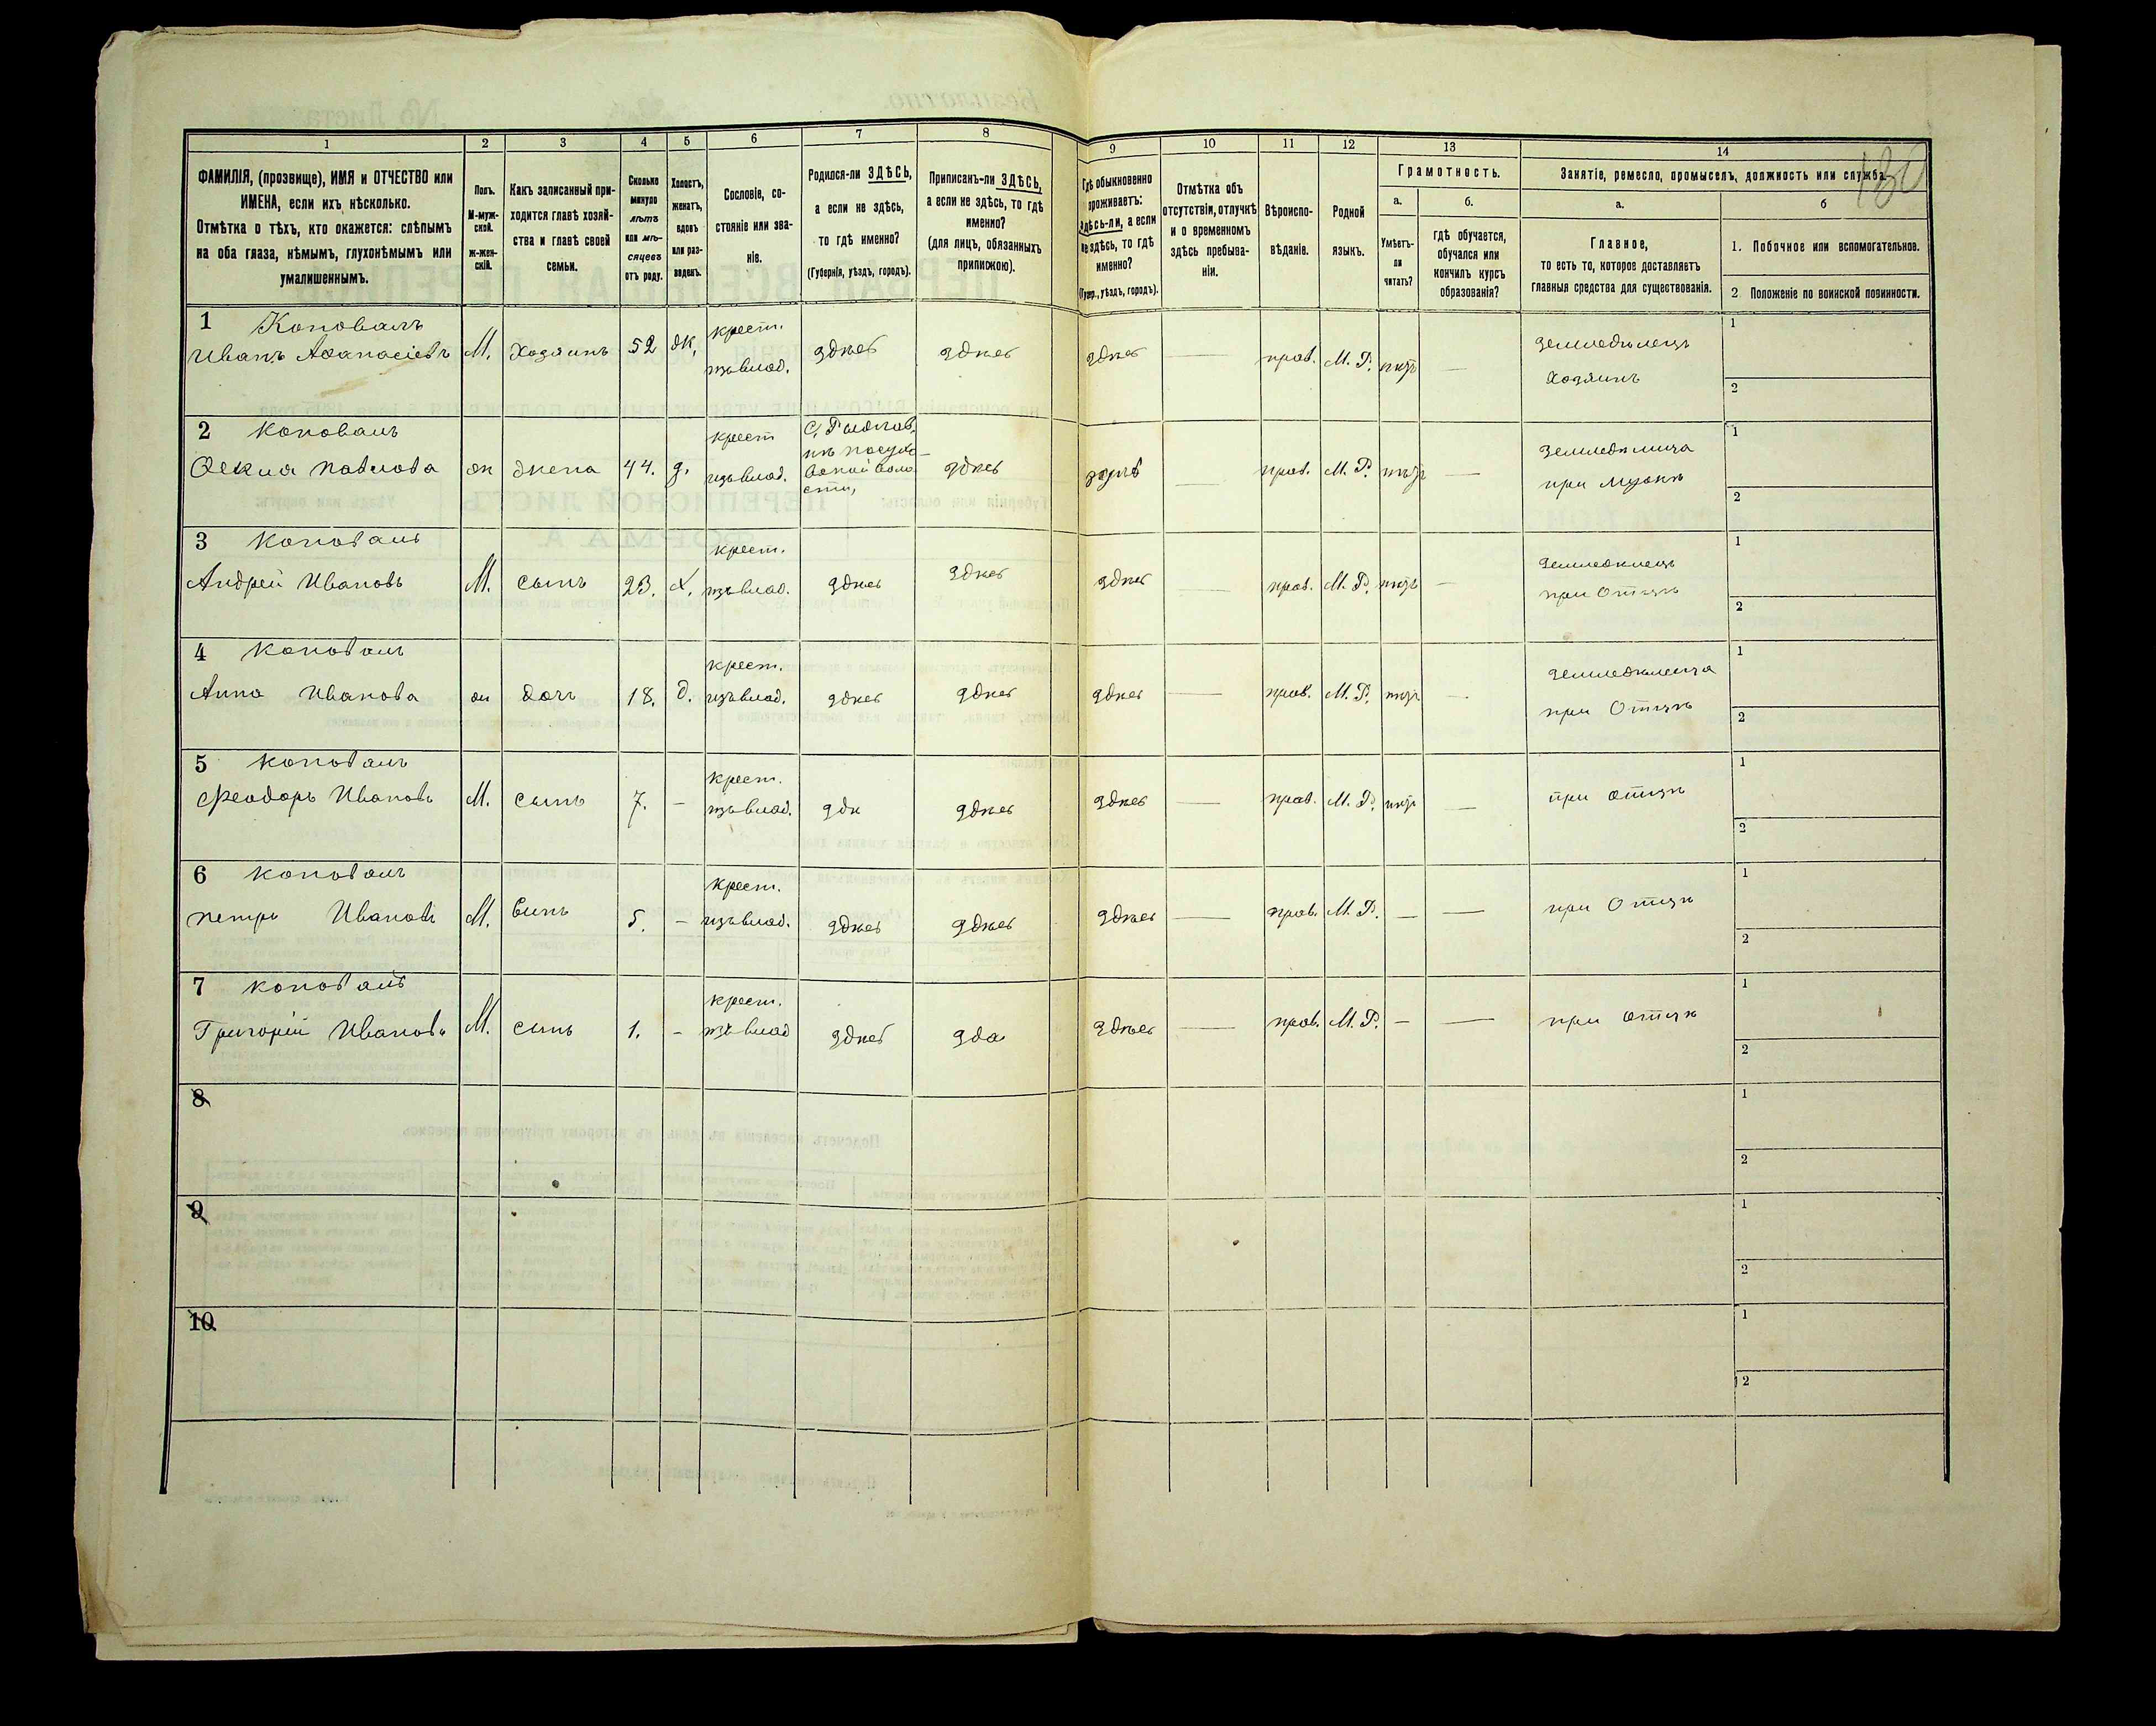 130
1 2 3 4 5 6 7 8 9 10 11 12 13 14
ФАМИЛІЯ, (прозвище), ИМЯ и ОТЧЕСТВО или
ИМЕНА, если ихъ нѣсколько.
Отмѣтка о тѣхъ, кто окажется: слѣпымъ
на оба глаза, нѣмымъ, глухонѣмымъ или
умалишеннымъ.
Полъ.
М-муж-
ской.
Ж-жен-
скій.
Какъ записанный при-
ходится главѣ хозяй-
ства и главѣ своей
семьи.
Сколько
минуло
лѣтъ
или мѣ-
сяцевъ
отъ роду.
Холостъ,
женатъ,
вдовъ
или раз-
веденъ.
Сословіе, со-
стояніе или зва-
ніе.
Родился-ли ЗДѢСЬ,
а если не здѣсь,
то гдѣ именно?
(Губернія, уѣздъ, городъ).
Приписанъ-ли ЗДѢСЬ,
а если не здѣсь, то гдѣ
именно?
(для лицъ, обязанныхъ
припискою).
Гдѣ обыкновенно
проживаетъ:
здѣсь-ли, а если
не здѣсь, то гдѣ
именно?
(Губер., уѣздъ, городъ).
Отмѣтка объ
отсутствіи, отлучкѣ
и о временномъ
здѣсь пребыва-
ніи.
Вѣроиспо-
вѣданіе.
Родной
языкъ.
Грамотность.
а.
Умѣетъ-
ли
читать?
б.
гдѣ обучается,
обучался или
кончилъ курсъ
образованія?
Занятіе, ремесло, промыселъ, должность или служба.
а.
Главное,
то есть то, которое доставляетъ
главныя средства для существованія.
б
1. Побочное или вспомогательное.
2 Положеніе по воинской повинности.
1 Коновалъ крест. Земледѣлецъ 1
Иванъ Афанасіевъ М. Хозяинъ 52 ж. изъ влад. здѣсь здѣсь здѣсь — прав. М. Р. нѣтъ — Хозяинъ 2
2 Коновалъ крест Земледѣлица 1
Фекла Павлова ж жена 44. з. изъ влад. здѣсь здѣсь — прав. М. Р. нѣтъ — при Мужѣ 2
3 Коновалъ крест. Земледѣлецъ 1
Андрей Ивановъ М. сынъ 23. х. изъ влад. здѣсь здѣсь здѣсь — прав. М. Р. нѣтъ — при Отцѣ 2
4 Коновалъ крест. Земледѣлица 1
Анна Иванова ж дочь 18. д. изъ влад. здѣсь здѣсь здѣсь — прав. М. Р. нѣтъ — при Отцѣ 2
5 Коновалъ крест. 1
Феодоръ Ивановъ М. сынъ 7. – изъ влад. здѣ здѣсь здѣсь — прав. М. Р. нѣтъ — при отцѣ 2
6 Коновалъ крест. 1
Петръ Ивановъ М. сынъ 5. – изъ влад. здѣсь здѣсь здѣсь — прав. М. Р. — — при Отцѣ 2
7 Коновалъ крест. 1
Григорій Ивановъ М. сынъ 1. – изъ влад здѣсь здѣсь — прав. М. Р. – — при отцѣ 2
8 1
2
9 1
2
10 1
2